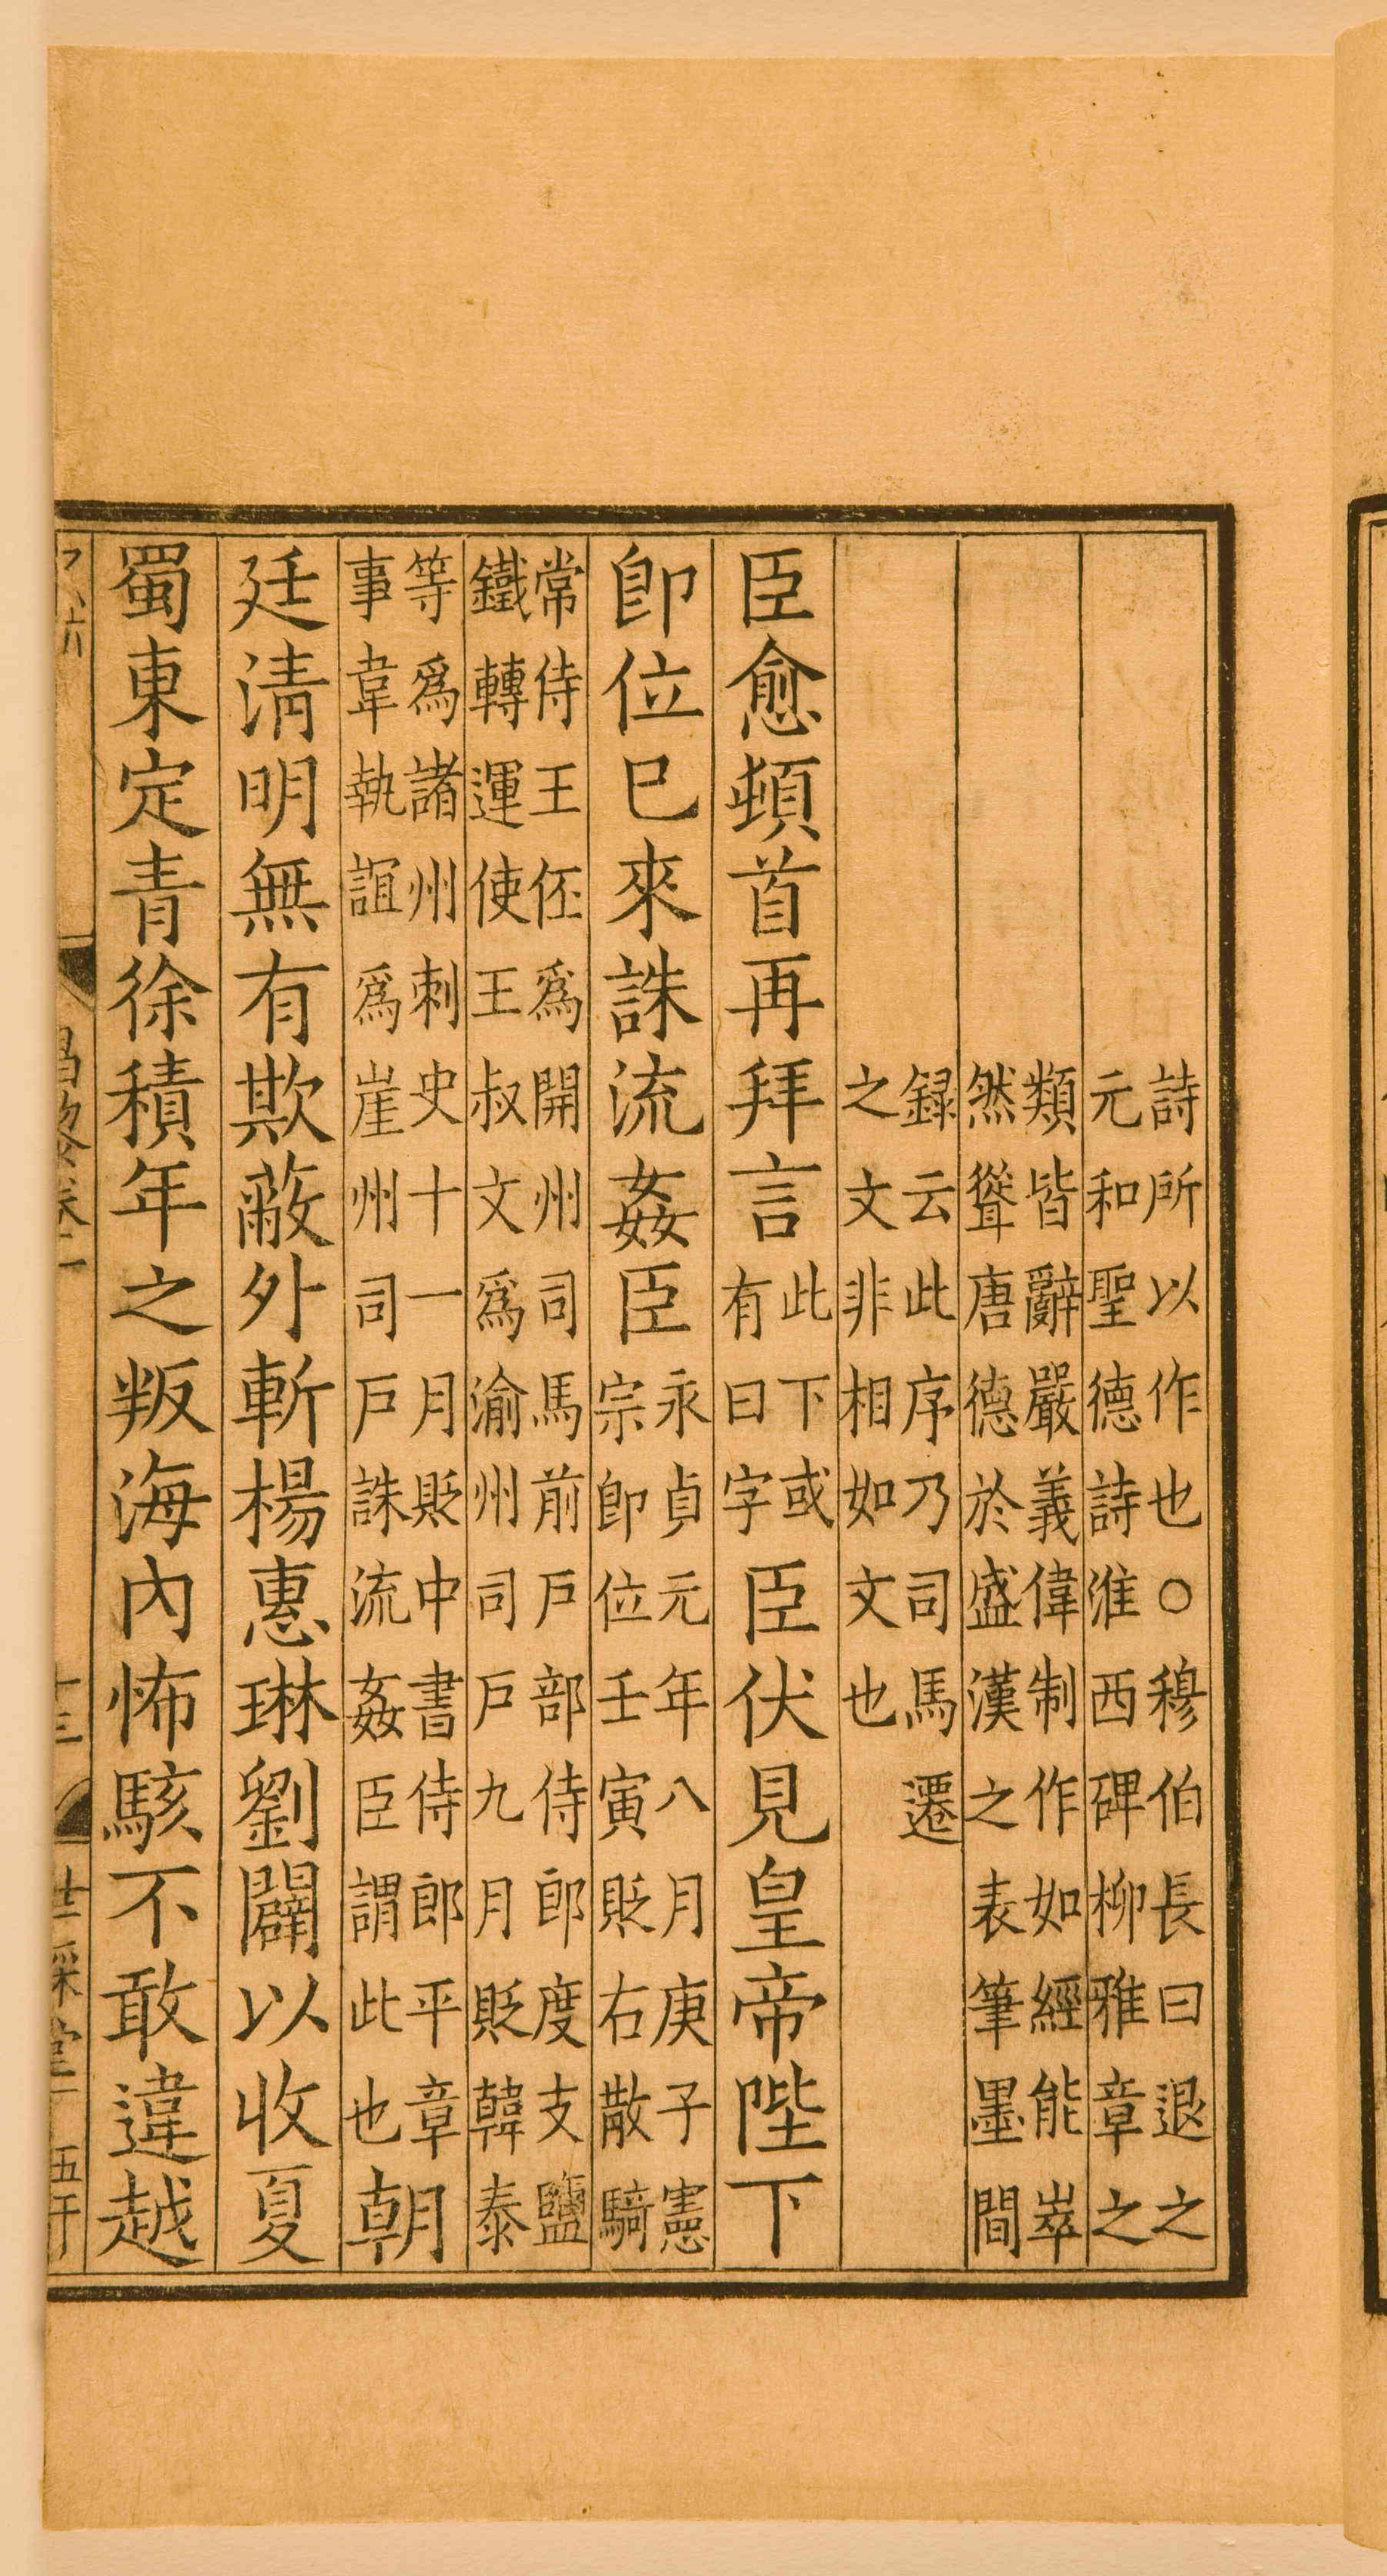 詩所以作也〇穆伯長曰退之
元和聖德詩淮西碑柳雅章之
類皆辭嚴義偉制作如經能崒
然聳唐德於盛漢之表筆墨間
録云此序乃司馬遷
之文非相如文也
臣愈頓首再拜言此下或有曰字臣伏見皇帝陛下
卽位巳來誅流姦臣永貞元年八月庚子憲宗卽位壬寅貶右散騎
常侍王伾爲開州司馬前戶部侍郎度支鹽
鐵轉運使王叔文爲渝州司戶九月貶韓泰
等爲諸州刺史十一月貶中書侍郎平章
事韋執誼爲崖州司戶誅流姦臣謂此也朝
廷淸明無有欺蔽外斬楊惠琳劉闢以收夏
蜀東定青徐積年之叛海內怖駭不敢違越
昌黎卷一
十三
世綵堂